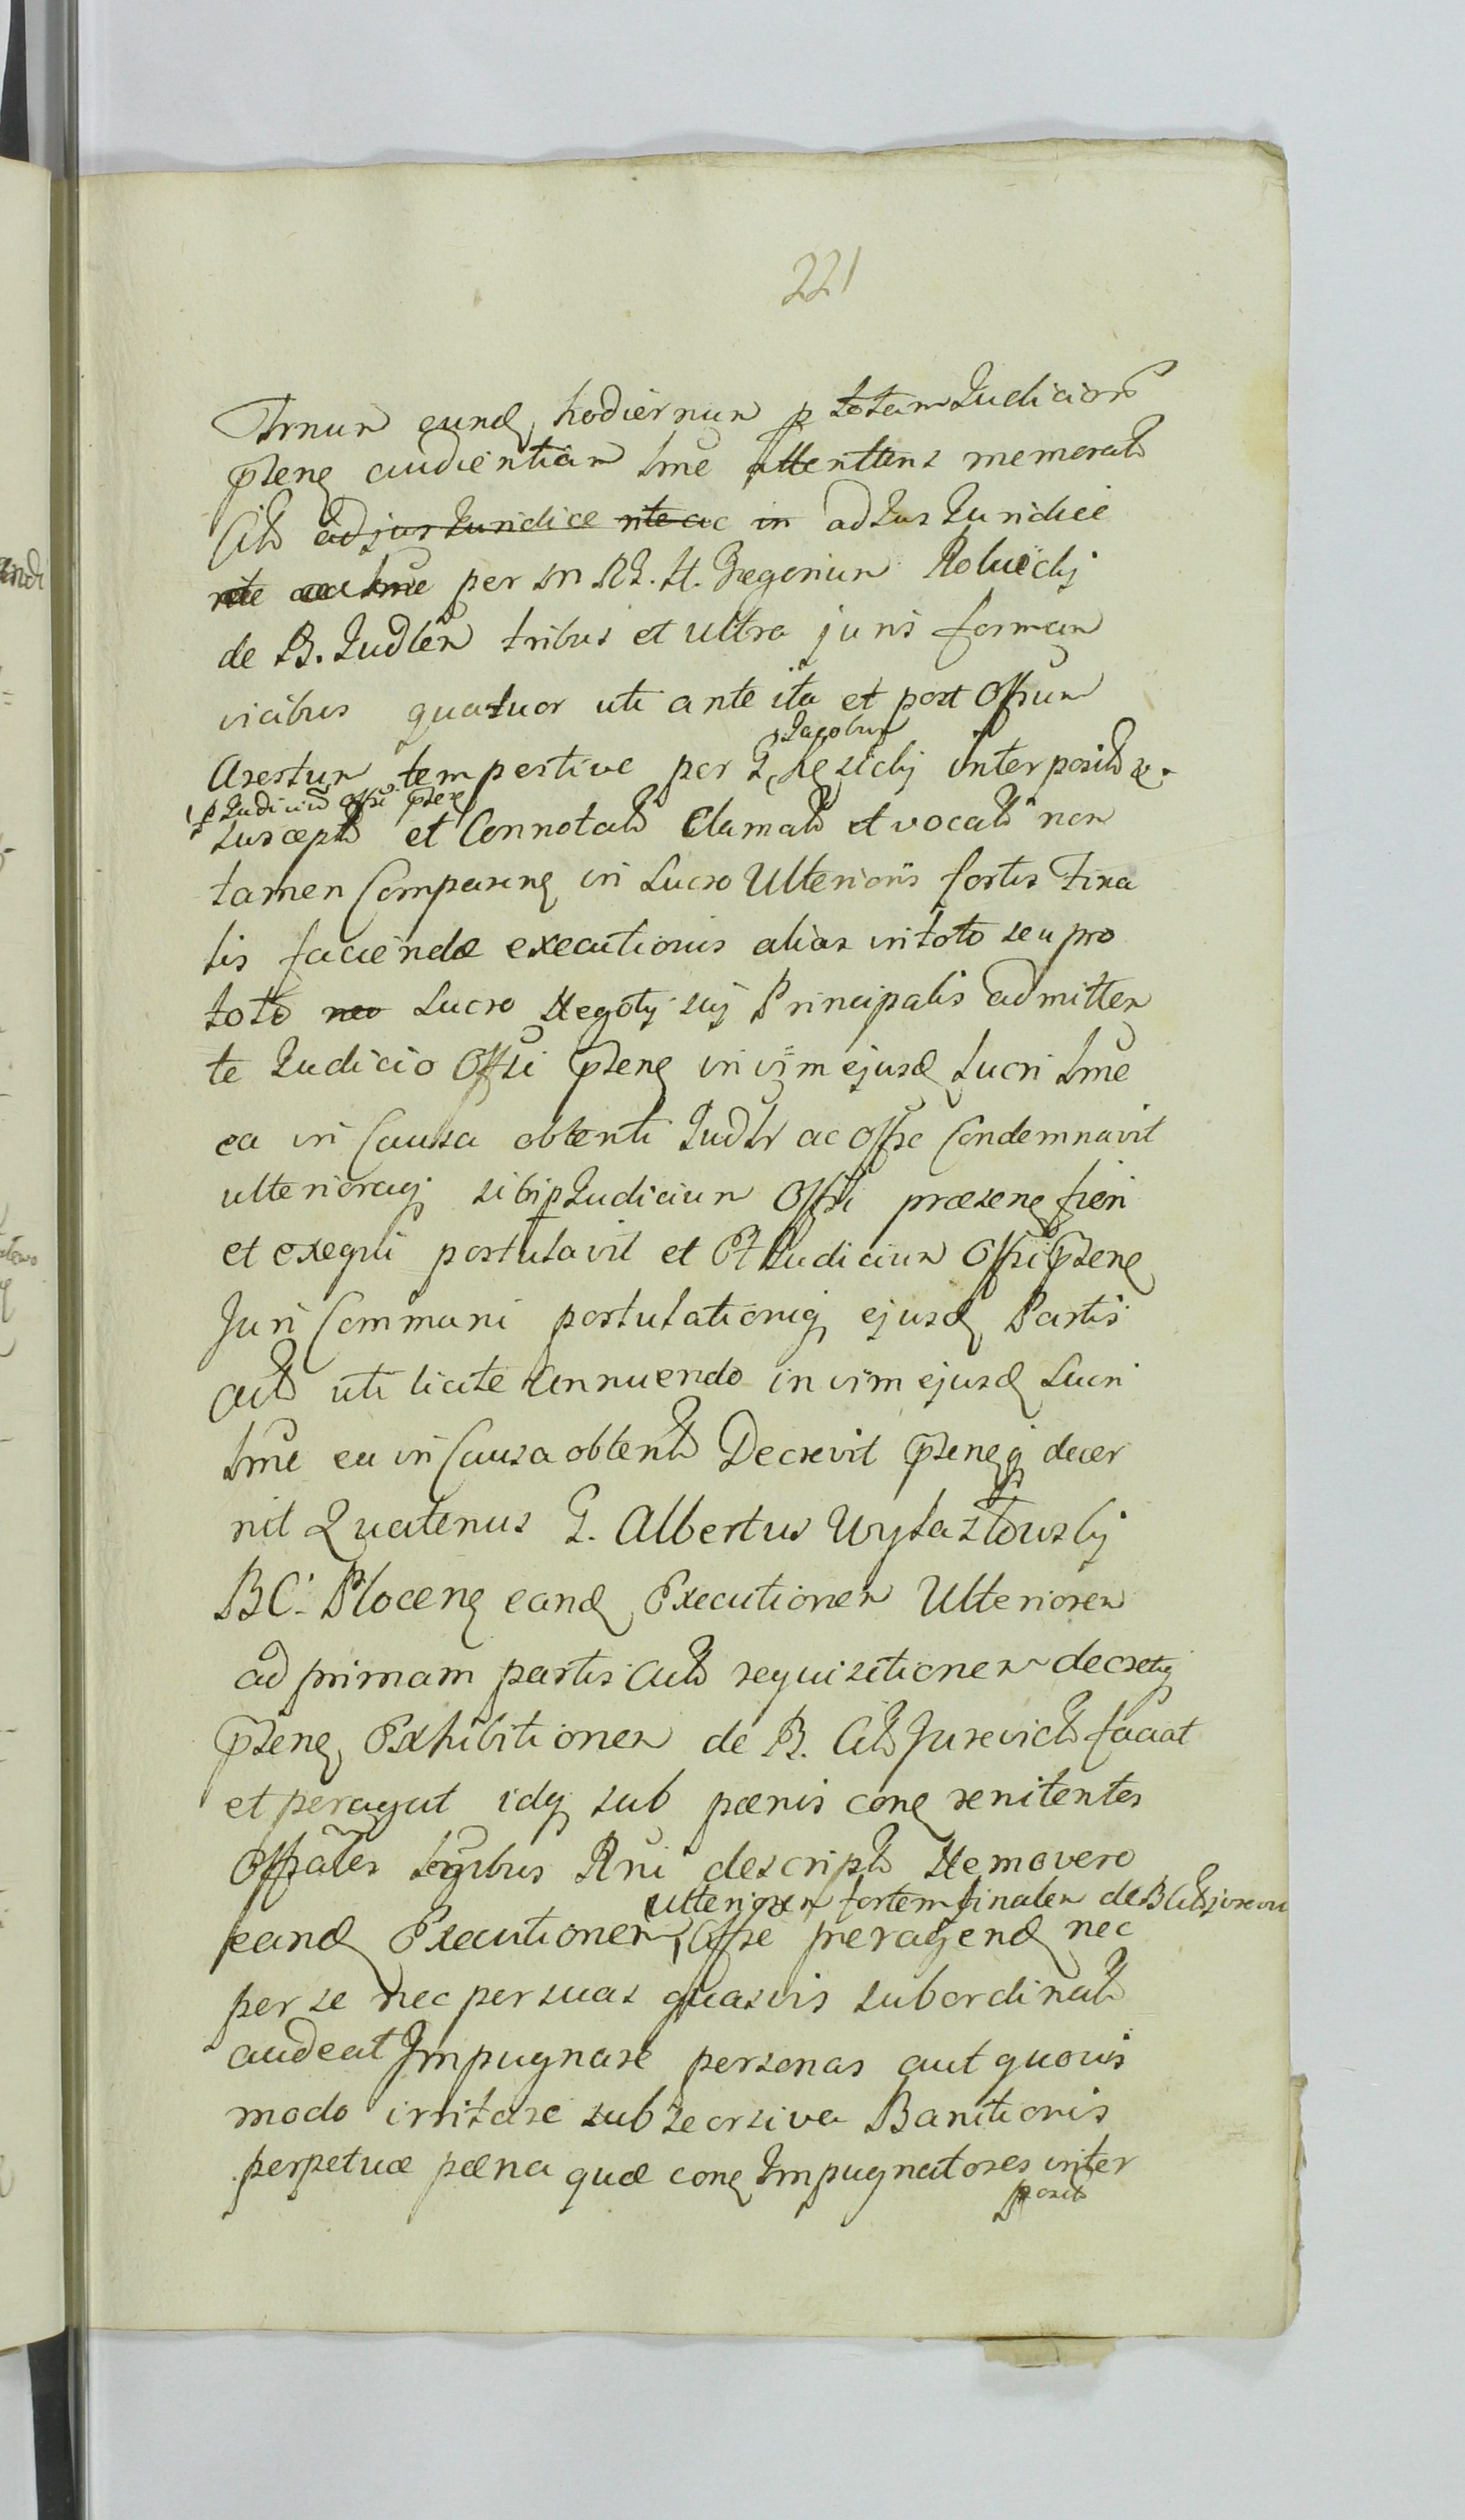 221
Trnum eund hodiernum p totam Judicior
pseng audientiam tme attentens memorat
Cit ad jus Juridice rite ac in ad Jus Juridice
rite ac tme per M RJ. H. Gregorium
de R. Judlem tribus et ultra juris formam
vicibus quatuor uti ante ita et post Offium
Jacobum
Arestum tempestive per G interposit et
p Judiciu Offi pseng
suscept et Connotat Clamat et vocat non
tamen Compareng in Lucro Ulterioris fortis Fina
lis faciendæ executionis alias in toto seu pro
toto neo Lucro Negotij sui Principalis admitten
te Judicio Offsi pseng in vim ejusd Lucri tme
ea in Causa obtenti Judlr ac offse Condemnavit
ulterioraq sibi p Judicium Offsi præseng fieri
et exequi postulavit et Et Judicium Offsi pseng
Juri Communi postulationiq ejusd Partis
Act uti licite annuendo in vim ejusd Lucri
tme ea in Causa obtent Decrevit psengq decer
nit Quatenus G. Albertus Wytaztowskj
BC. Ploceng eand Executionem Ulteriorem
ad primam partis Act requisitionem decretiq
pseng Exhibitionem de R. Cit Jurevict faciat
et peragat idq sub pænis cong renitentes
Offsales legibus Rni descript Nemo vero
ulteriorem fortem finalem de B Cit jurevi
eand Executionem Offse peragend nec
per se nec per suas quasvis subordinat
audeat Impugnare personas aut quovis
modo irritare sub seorsiva Banitionis
perpetuæ pæna quæ cong Impugnatores inter
posit